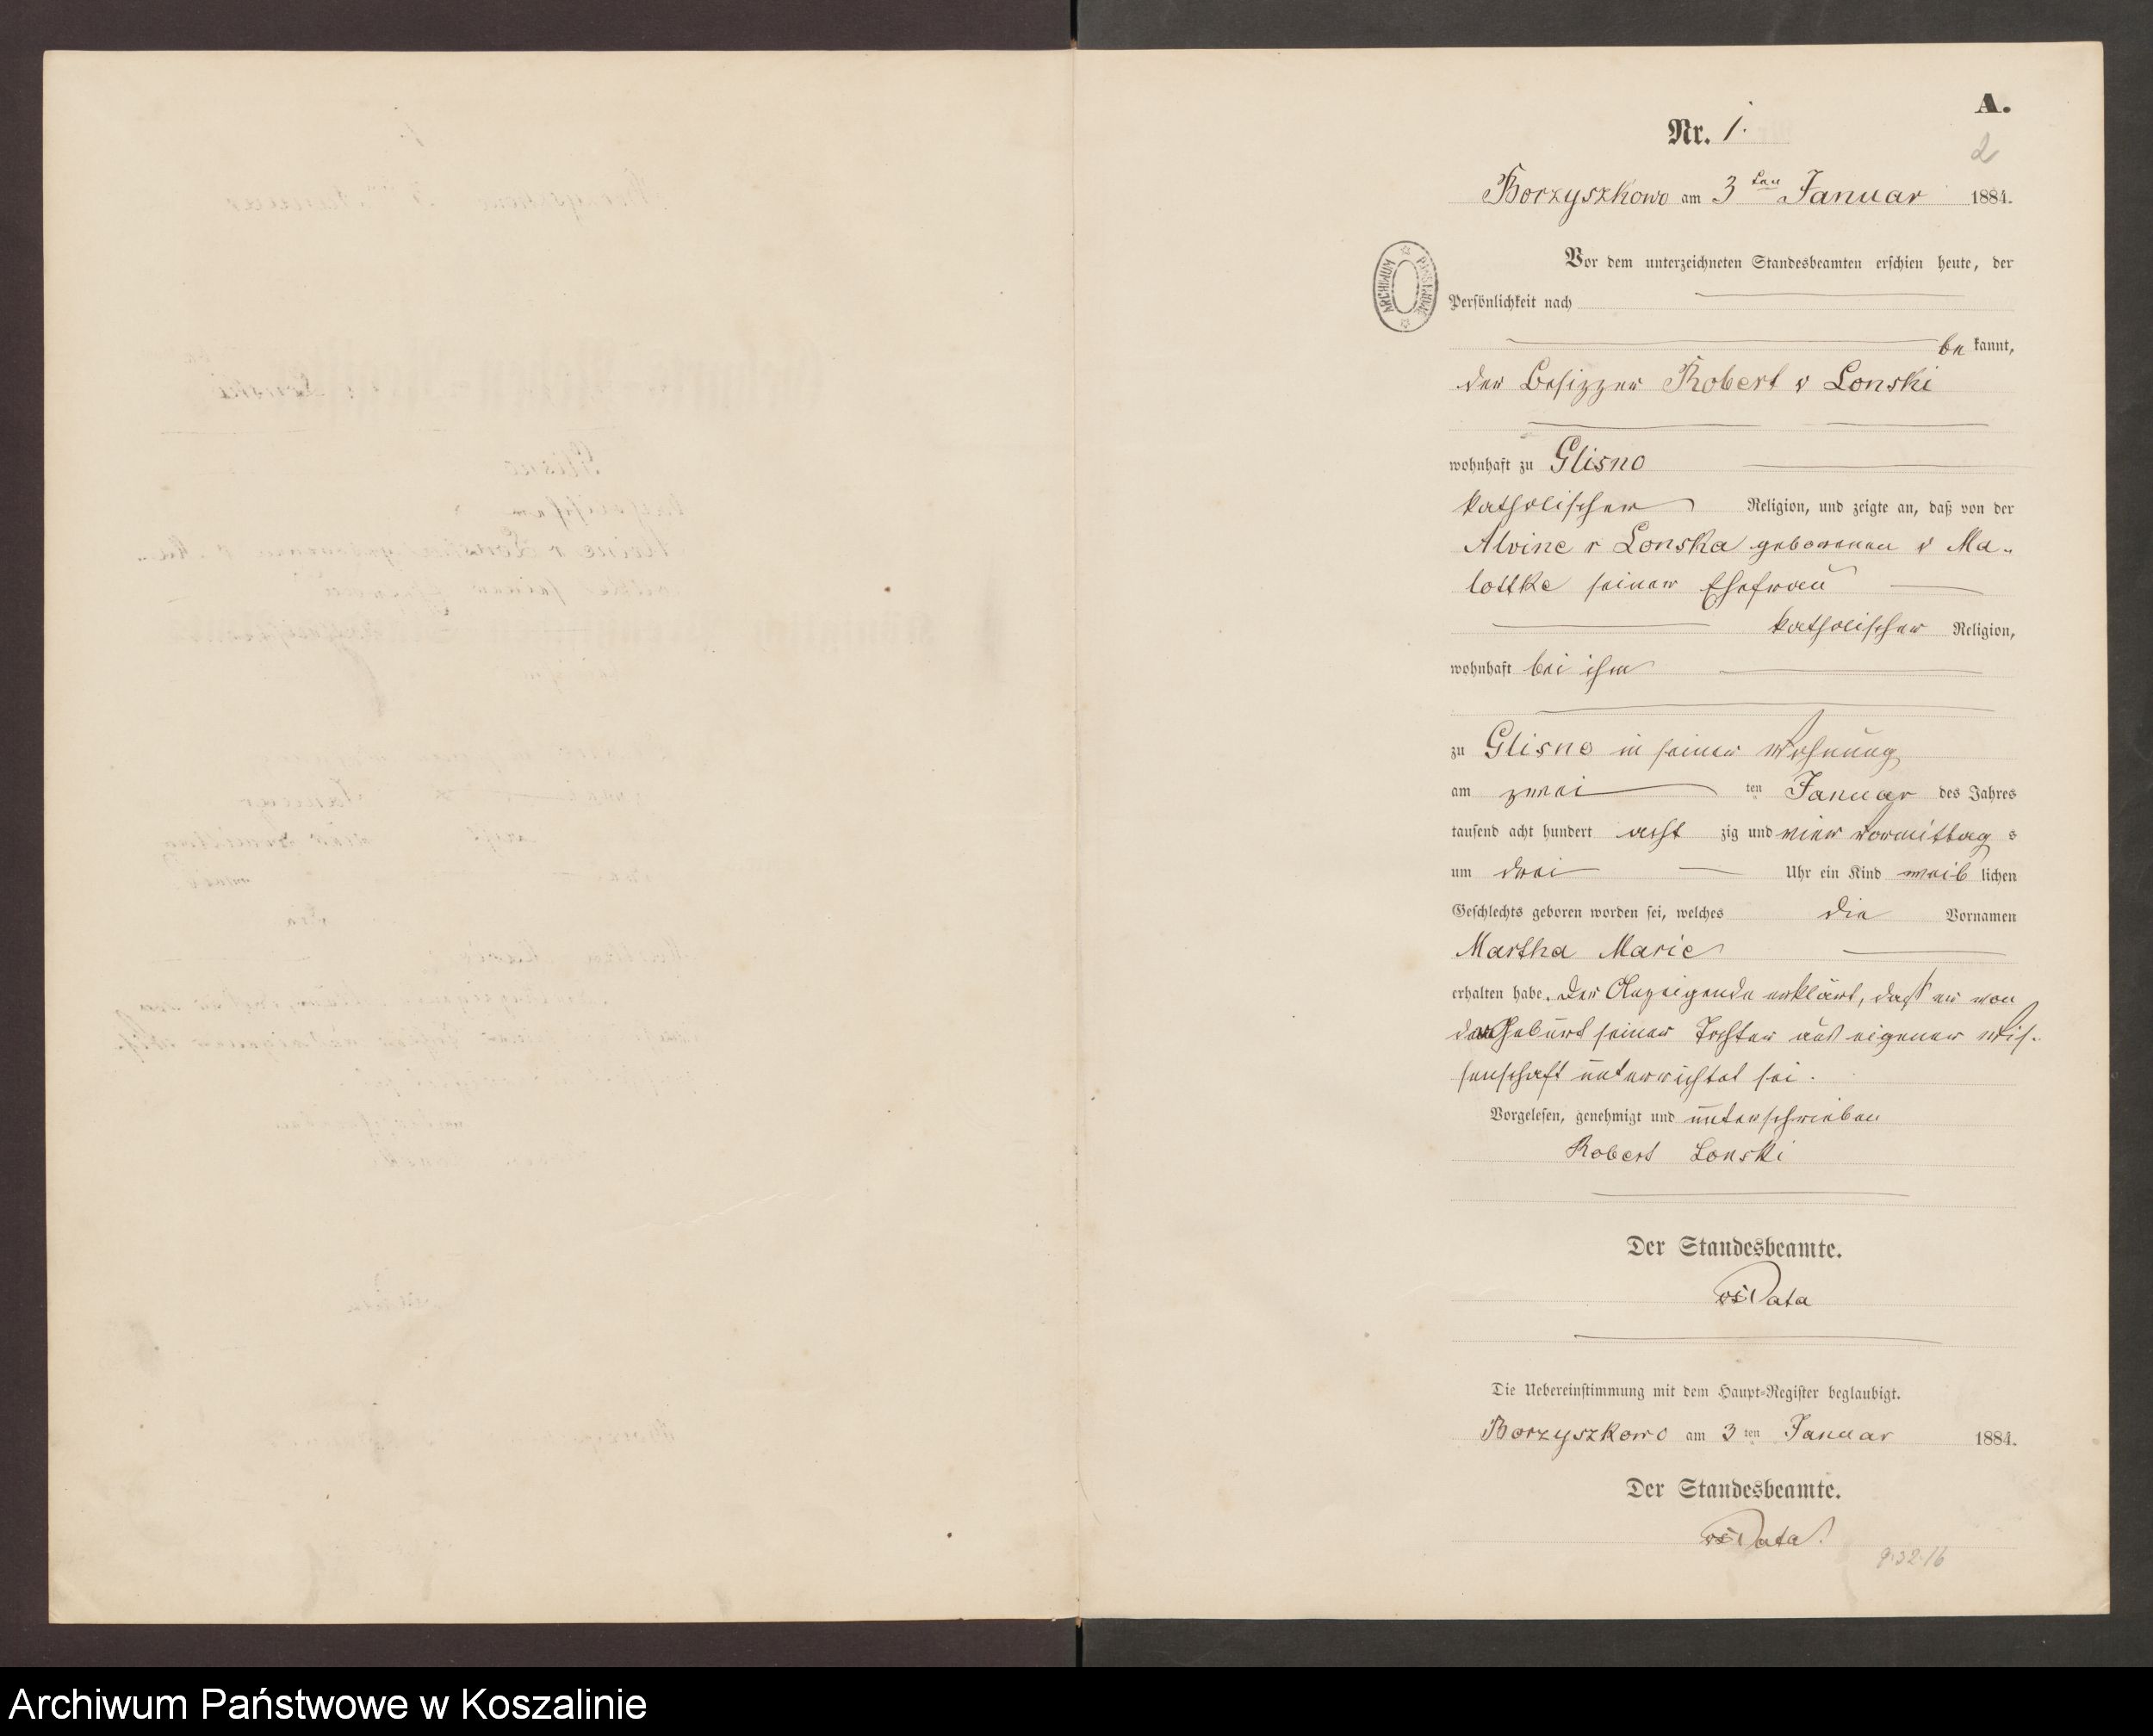 A.
Nr. 1.
2
Borzyszkowo am 3ten Januar 1884.
Vor dem unterzeichneten Standesbeamten erschien heute, der
Persönlichkeit nach
be kannt,
der Besizzer Robert v Lonski
wohnhaft zu Glisno
katholischer Religion, und zeigte an, daß von der
Alvine v Lonska geborenen v Ma-
lottke seiner Ehefrau
katholischer Religion,
wohnhaft bei ihm
zu Glisno in seiner Wohnung
am zwei ten Januar des Jahres
tausend acht hundert acht zig und vier vormittag s
um drei Uhr ein Kind weib lichen
Geschlechts geboren worden sei, welches die Vornamen
Martha Marie
erhalten habe. Der Anzeigende erklärt, daß er von
der Geburt seiner Tochter aus eigener Wis-
senschaft unterrichtet sei.
Vorgelesen, genehmigt und unterschrieben
Robert Lonski
Der Standesbeamte.
Data
Die Uebereinstimmung mit dem Haupt-Register beglaubigt.
Borzyszkowo am 3 ten Januar 1884.
Der Standesbeamte.
Data
9.32.16
ARCHIWUM PAŃSTWOWE
Archiwum Państwowe w Koszalinie